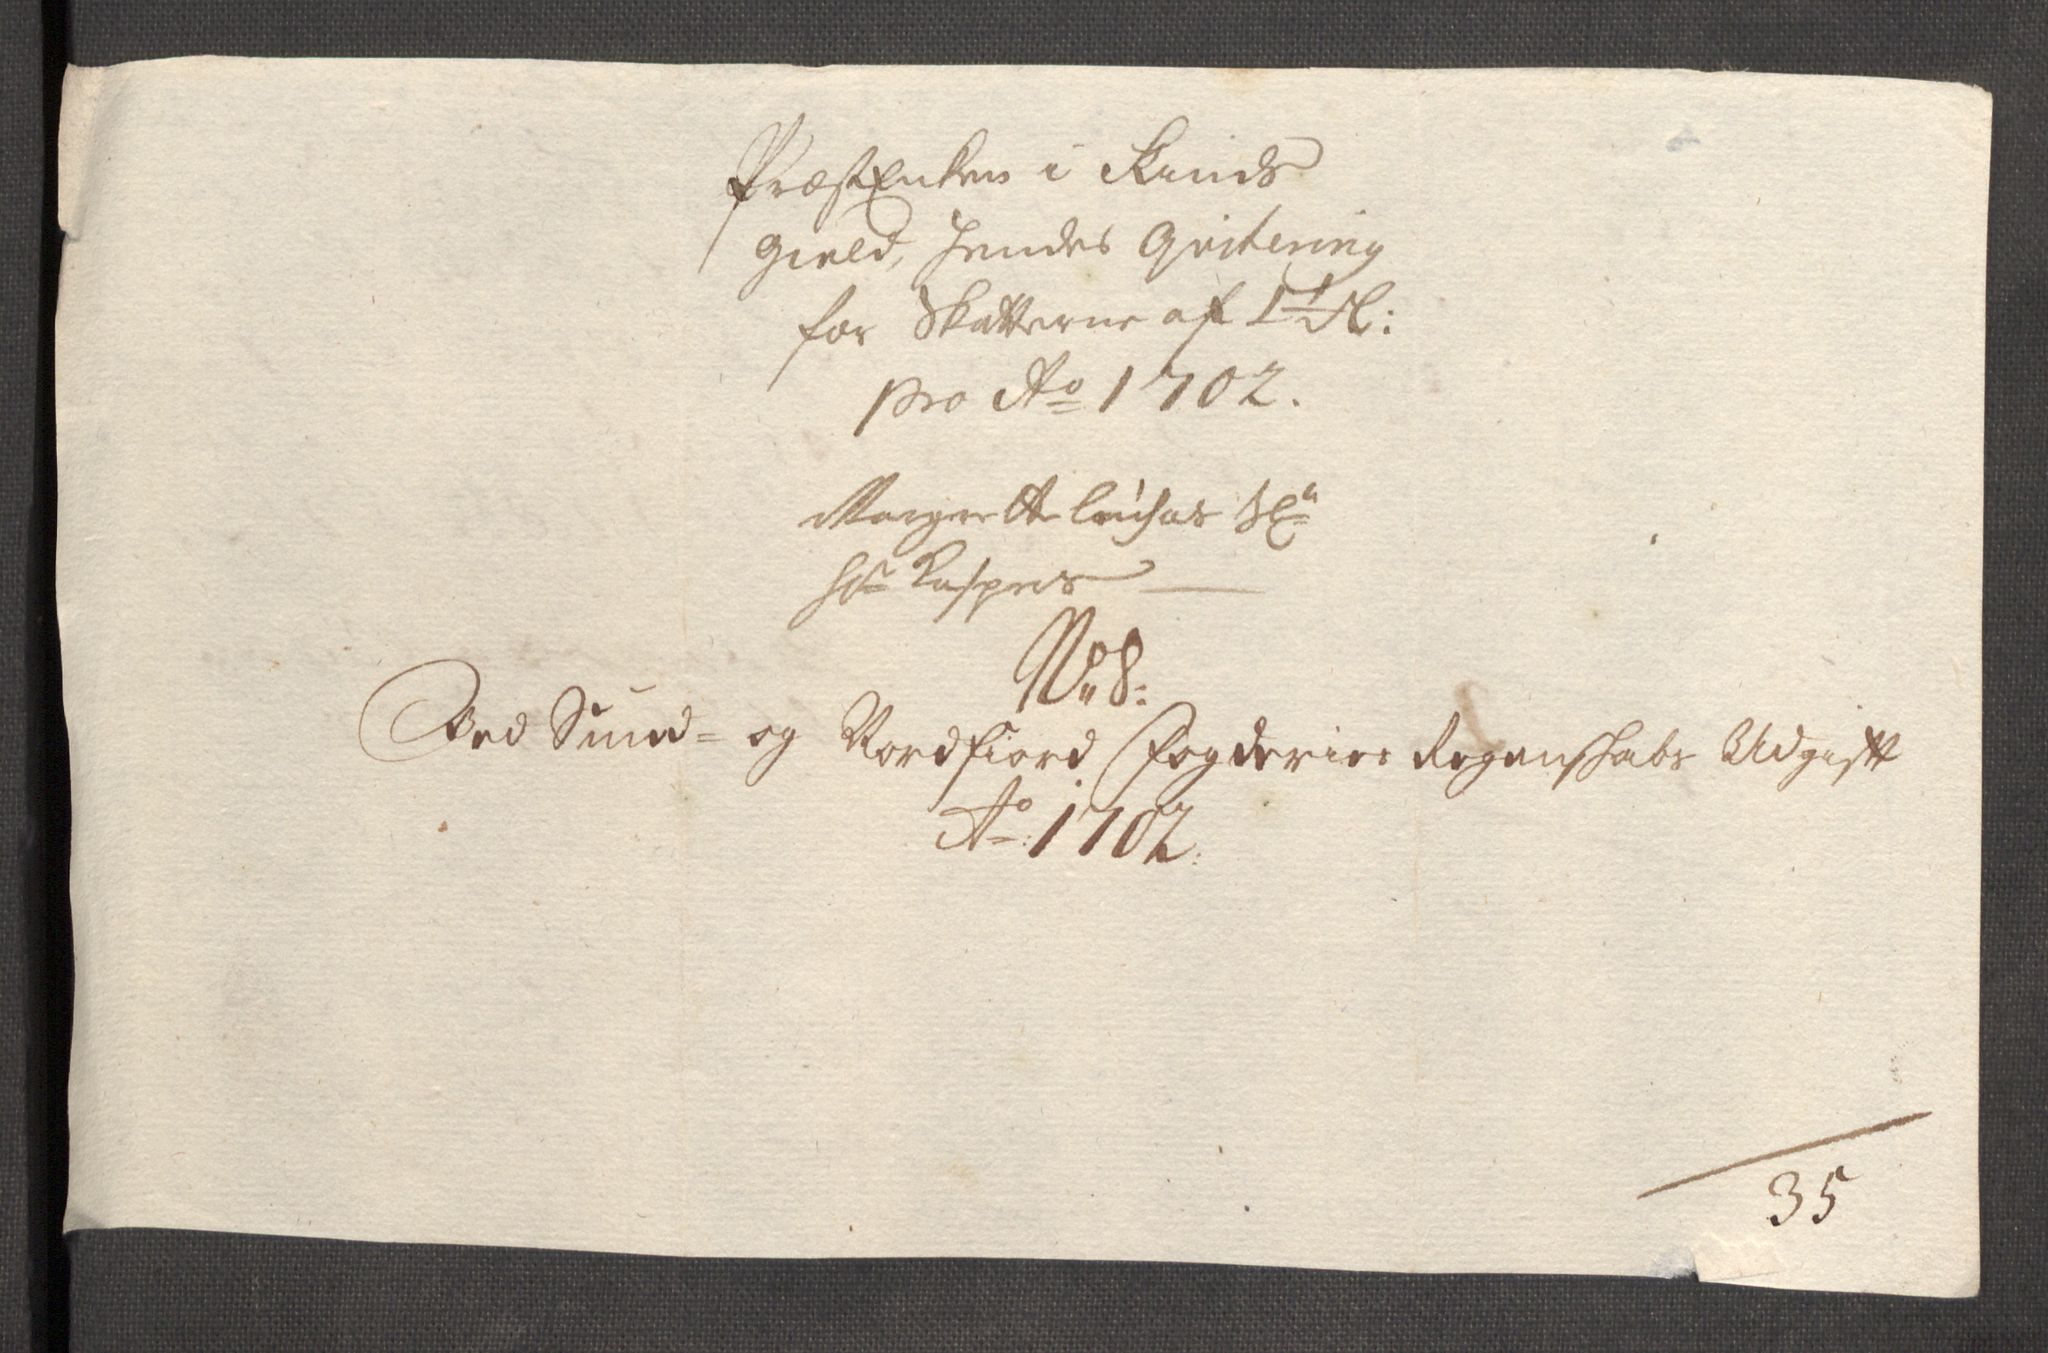 PræstEnken i Kinds
gield, hendes Qvitering
for Skatterne af
pro Ao 1702.
Margrette Sl
Hr Caspers
No 8:
Ved Sund= og Nordfiord Fogderier Regenskabs Udgifft
Ao: 1702:
35